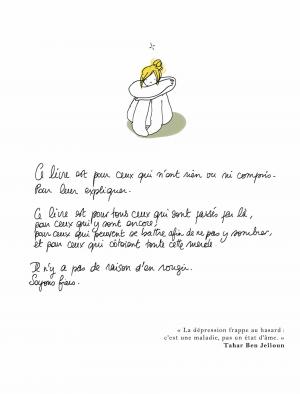 Ce livre est pour ceux qui n'ont rien vu ni compris.
Pour leur expliquer.
Ce livre est pour tous ceux qui sont passés par là,
pour ceux qui y sont encore,
pour ceux qui peuvent se battre afin de ne pas y sombrer,
et pour ceux qui côtoient toute cette merde.
Il n'y a pas de raison d'en rougir.
Soyons fiers.
« La dépression frappe au hasard :
c'est une maladie, pas un état d'âme. »
Tahar Ben Jelloun